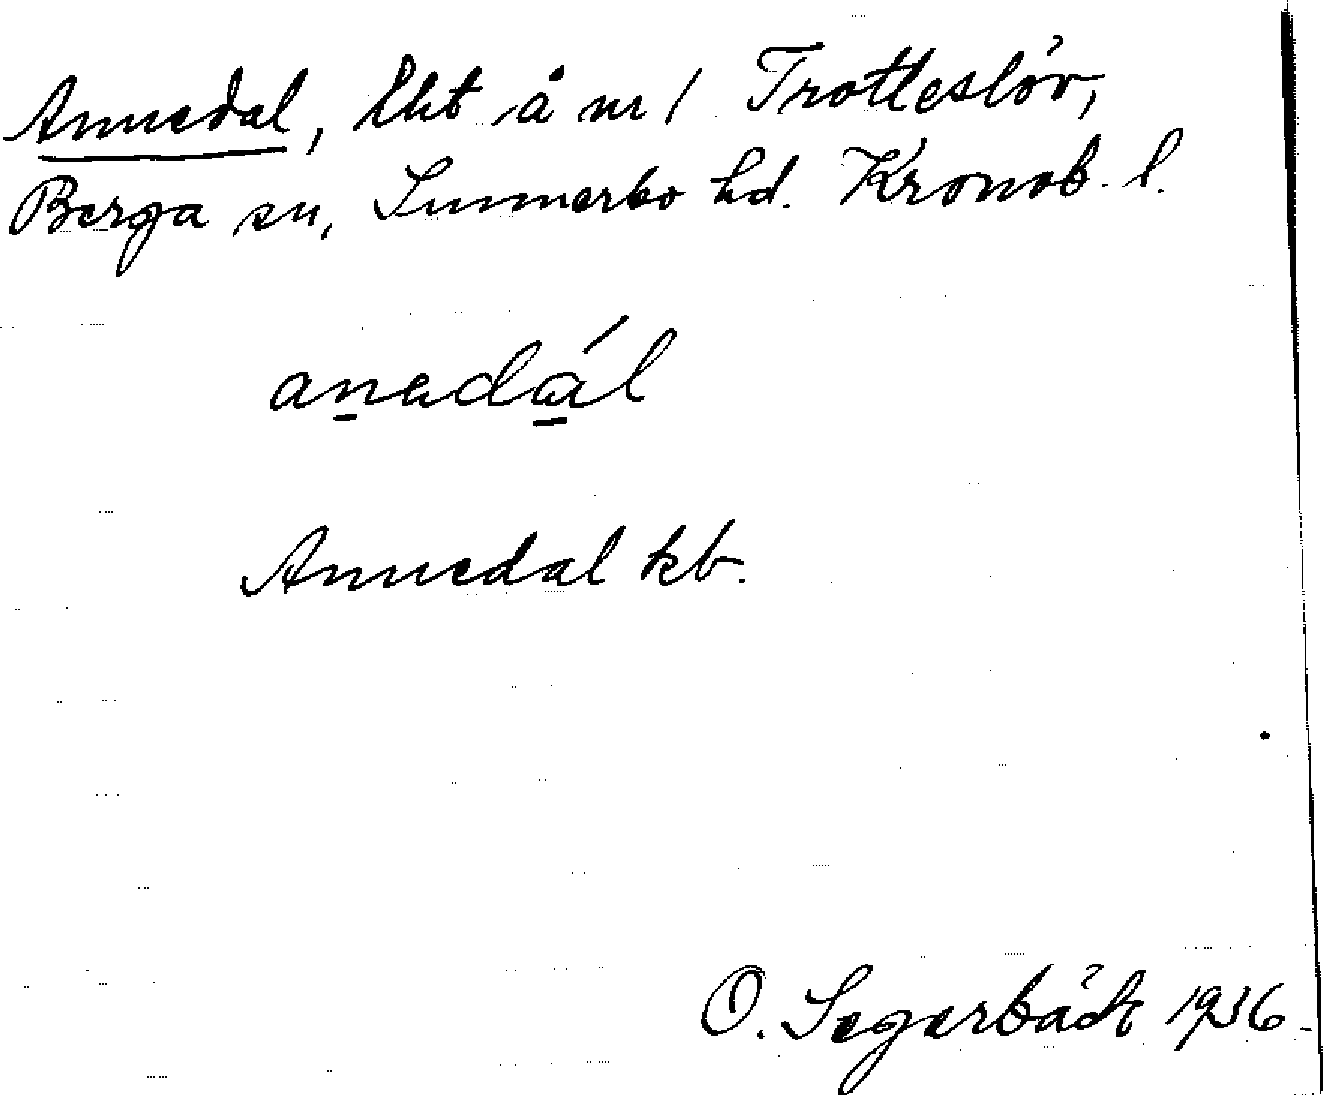 Annedal, lht å nr 1 Trotteslöv,
Berga sn, Sunnerbo hd. Kronob. l.
anadál
Annedal kb.
O. Segerbäck 1936